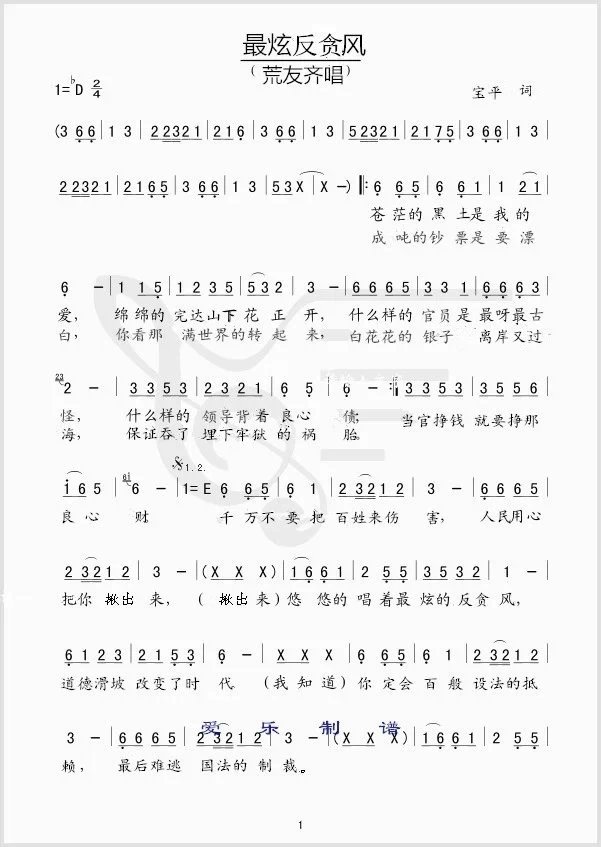 最炫反贪风
（荒友齐唱）
1=♭D 2/4
宝平 词
(3 6 6 | 1 3 | 2 2 3 2 1 | 2 1 6 | 3 6 6 | 1 3 | 5 2 3 2 1 | 2 1 7 5 | 3 6 6 | 1 3 |
2 2 3 2 1 | 2 1 6 5 | 3 6 6 | 1 3 | 5 3 X | X –) ‖: 6 6 5 | 6 6 1 | 1 2 1 |
苍茫的黑土是我的
成吨的钞票是要漂
6 – | 1 1 5 | 1 2 3 5 | 5 3 2 | 3 – | 6 6 6 5 | 3 3 1 | 6 6 6 3 |
爱， 绵绵的完达山下花正开， 什么样的官员是最呀最古
白， 你看那满世界的转起来， 白花花的银子离岸又过
23 2 – | 3 3 5 3 | 2 3 2 1 | 6 5 | 6 – :‖ 3 3 5 3 | 3 5 5 6 |
怪， 什么样的领导背着良心债； 当官挣钱就要挣那
海， 保证吞了埋下牢狱的祸胎。
1. 2.
1 6 5 | 6 – | 1=E 6 6 5 | 6 1 | 2 3 2 1 2 | 3 – | 6 6 6 5 |
良心财 千万不要把百姓来伤害， 人民用心
2 3 2 1 2 | 3 – | (X X X) | 1 6 6 1 | 5 6 5 3 | 2 3 5 5 | 1 – |
把你揪出来，（揪出来）悠悠的唱着最炫的反贪风，
6 1 2 3 | 2 1 5 3 | 6 – | (X X X) | 6 6 5 | 6 6 1 | 2 3 2 1 2 |
道德滑坡改变了时代（我知道）你定会百般设法的抵
爱乐制谱
3 – | 6 6 6 5 | 2 3 2 1 2 | 3 – | (X X X) | 1 6 6 1 | 5 6 5 3 |
赖， 最后难逃国法的制裁。
1